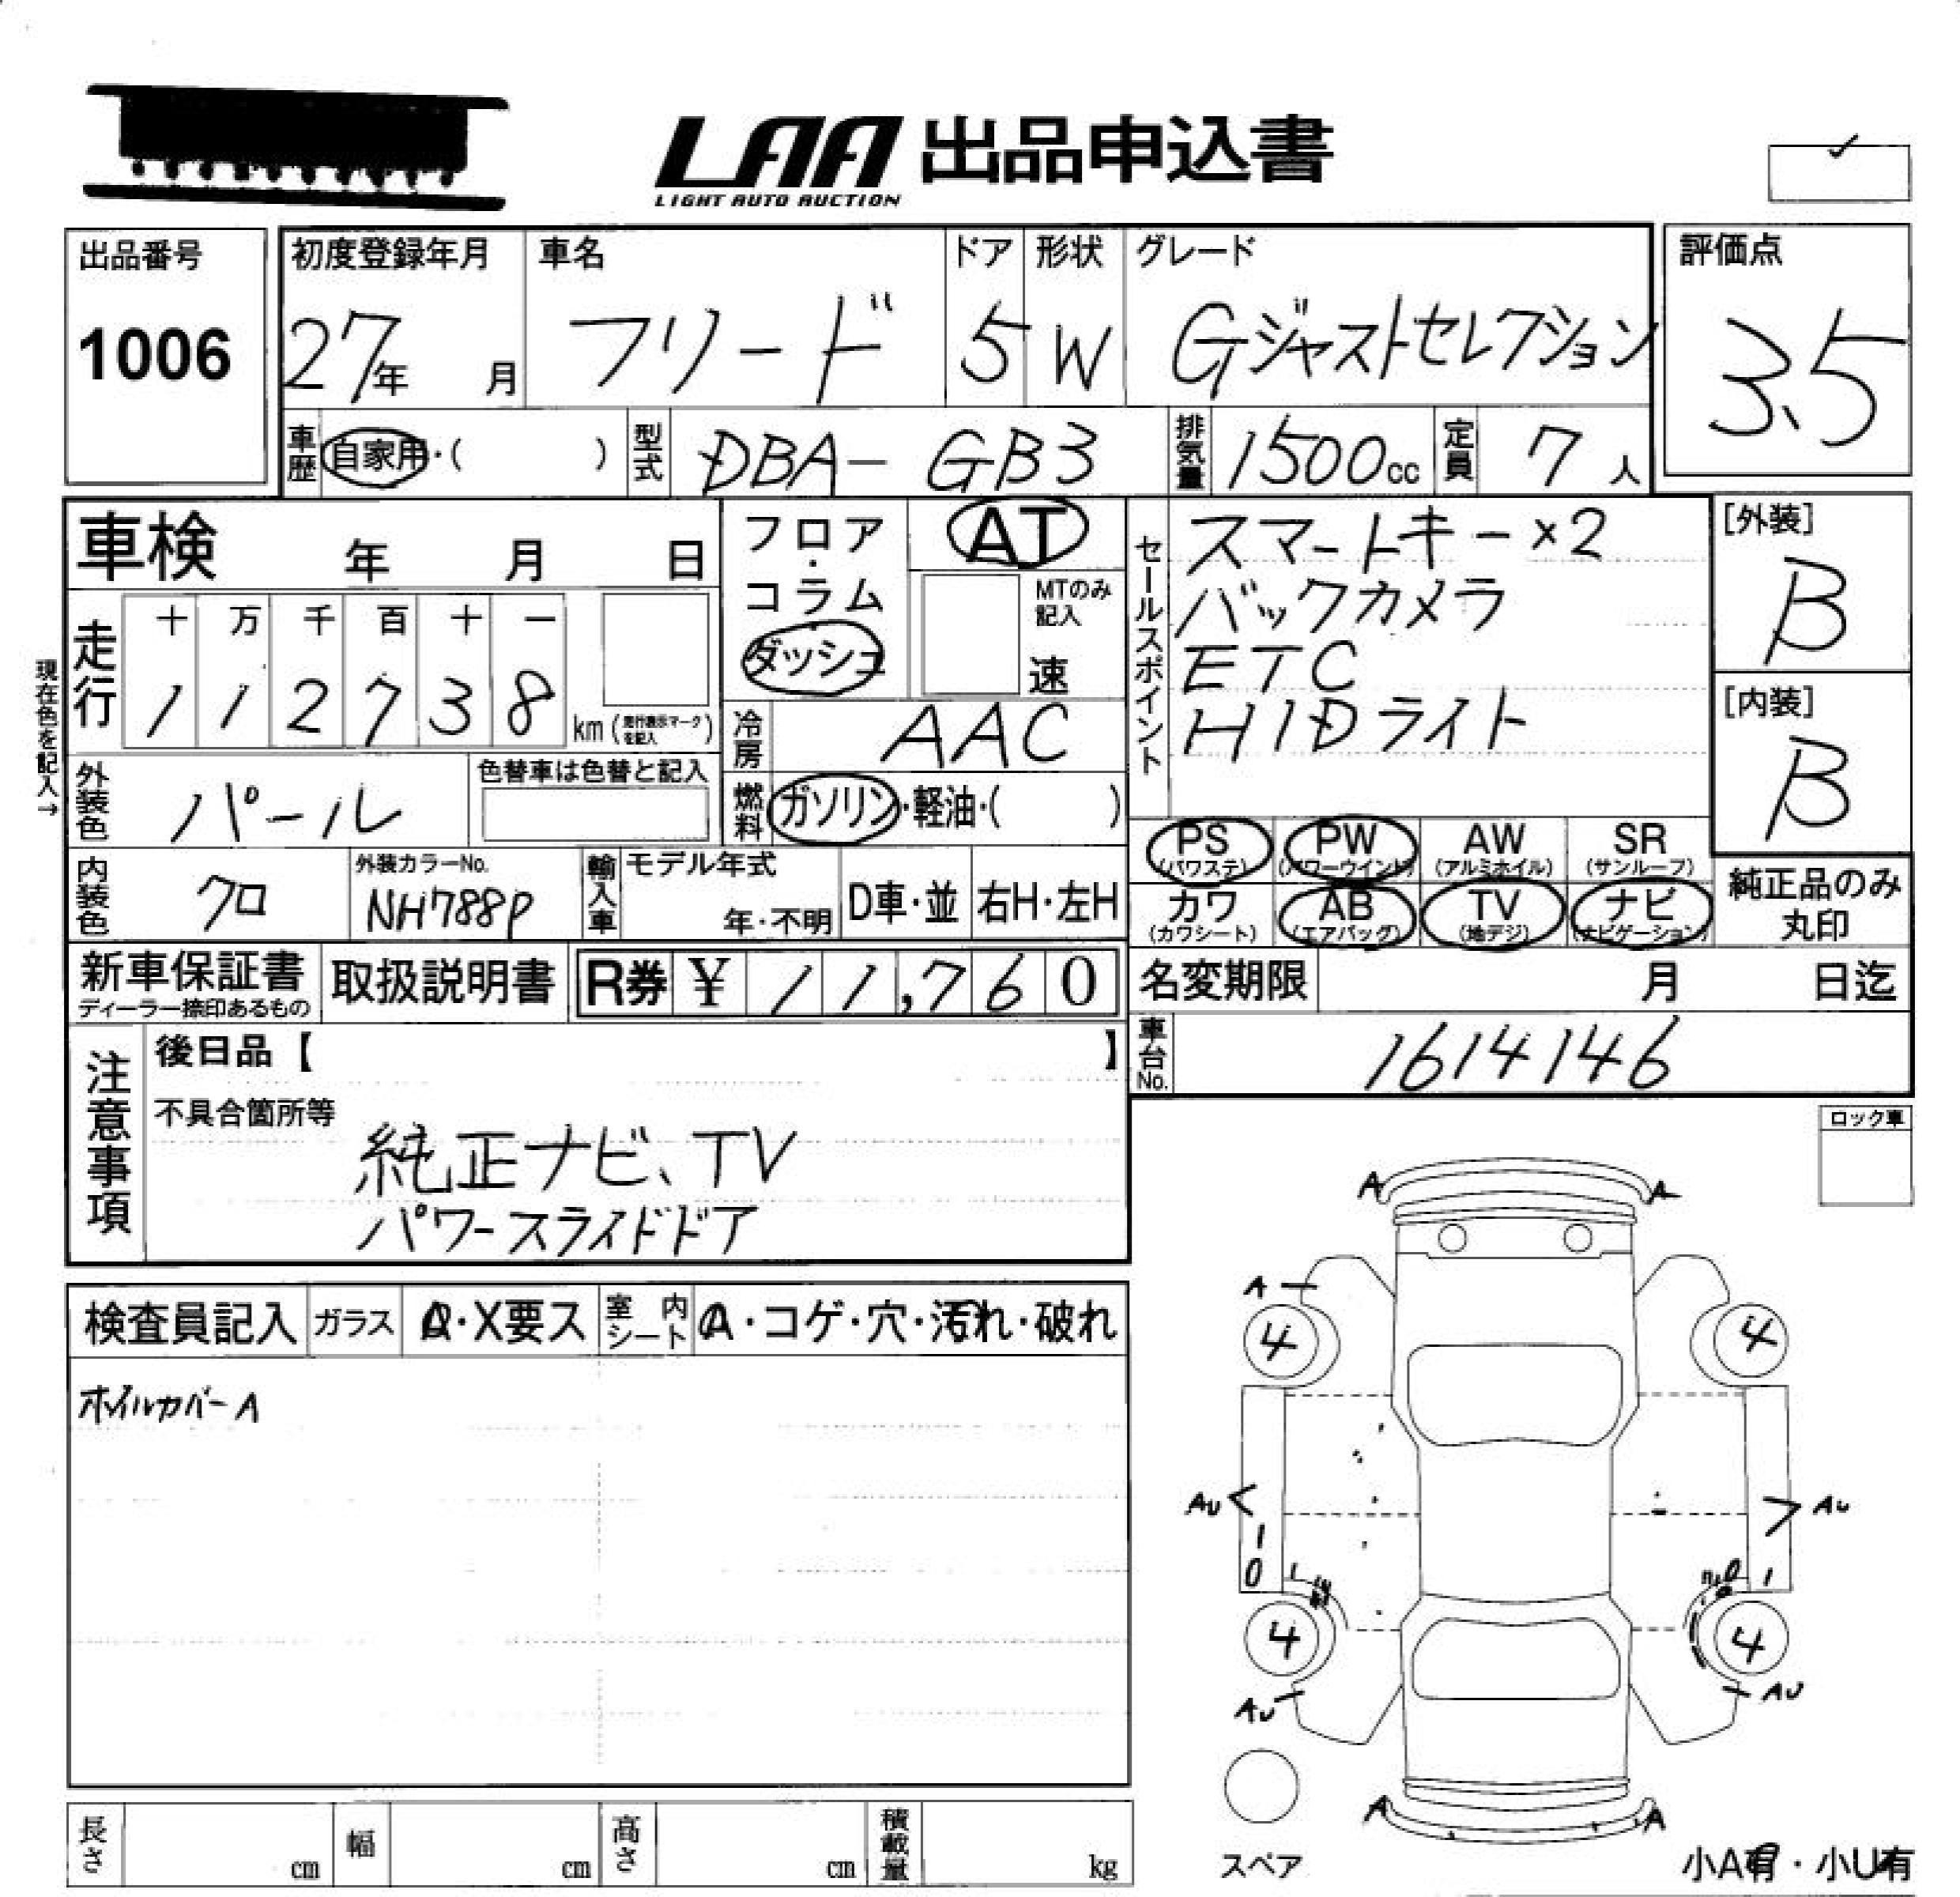 LAA 出品申込書
LIGHT AUTO AUCTION
出品番号
1006
初度登録年月
27年 月
車名
フリード
ドア
5
形状
W
グレード
Gジャストセレクション
評価点
3.5
車歴 自家用・( )
型式 DBA- GB3
排気量 1500cc
定員 7人
車検 年 月 日
現在色を記入→
走行
十 万 千 百 十 一
1 1 2 7 3 8 km (走行表示マークを記入)
フロア・コラム
ダッシュ
AT
MTのみ記入
速
冷房 AAC
燃料 ガソリン・軽油・( )
セールスポイント
スマートキー×2
バックカメラ
ETC
HIDライト
[外装]
B
[内装]
B
外装色 パール
色替車は色替と記入
内装色 クロ
外装カラーNo.
NH788P
輸入車
モデル年式
年・不明
D車・並
右H・左H
PS (パワステ)
PW (パワーウインド)
AW (アルミホイル)
SR (サンルーフ)
カワ (カワシート)
AB (エアバッグ)
TV (地デジ)
ナビ (ナビゲーション)
純正品のみ丸印
新車保証書
ディーラー捺印あるもの
取扱説明書
R券 ¥ 11,760
名変期限 月 日迄
車台No. 1614146
注意事項
後日品【 】
不具合箇所等
純正ナビ、TV
パワースライドドア
ロック車
検査員記入
ガラス A・X要ス
室内シート A・コゲ・穴・汚れ・破れ
ホイルカバーA
A A
A
4 4
Au Au
1
0 1 0 1
4 4
Au Au
A A
スペア
小A有・小U有
長さ cm
幅 cm
高さ cm
積載量 kg